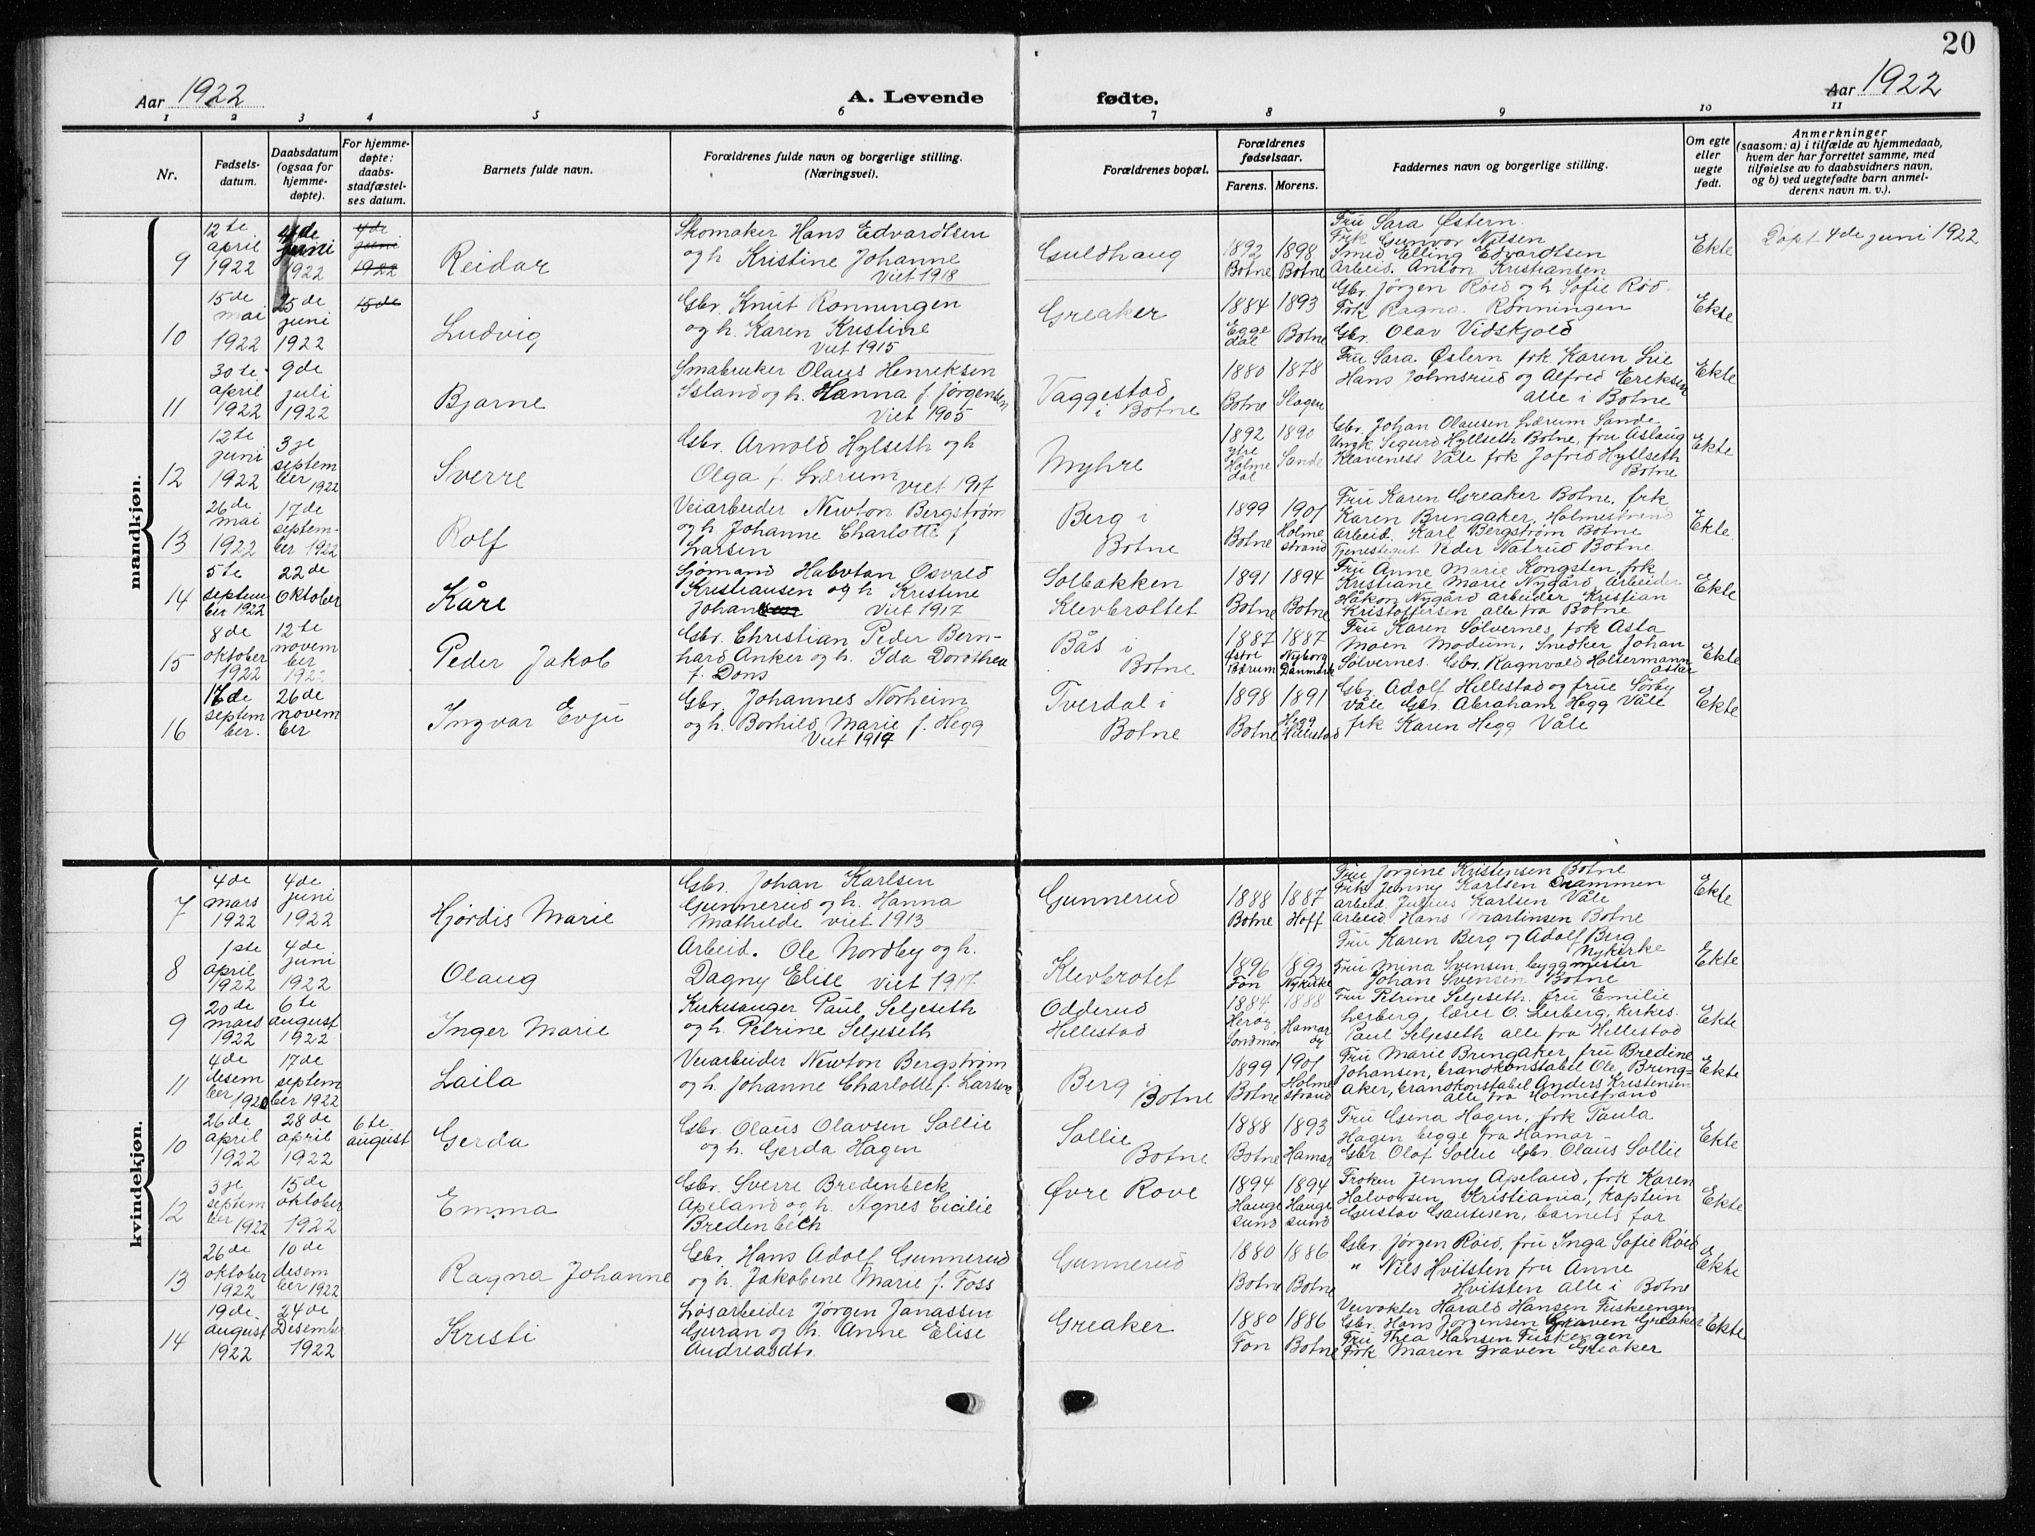 20
Aar 1922
A. Levende
fødte.
Aar 1922
1 2 3 4 5 6 7 8 9 10 11
Nr.
Fødsels-
datum.
Daabsdatum
(ogsaa for
hjemme-
døpte).
For hjemme-
døpte:
daabs-
stadfæstel-
ses datum.
Barnets fulde navn.
Forældrenes fulde navn og borgerlige stilling.
(Næringsvei).
Forældrenes bopæl.
Forældrenes
fødselsaar.
Farens. Morens.
Faddernes navn og borgerlige stilling.
Om egte
eller
uegte
født.
Anmerkninger
(saasom: a) i tilfælde av hjemmedaab,
hvem der har forrettet samme, med
tilføielse av to daabsvidners navn,
og b) ved uegtefødte barn anmel-
derens navn m. v.).
mandkjøn.
9
12te
april
1922
4de
juni
1922
4de
juni
1922
Reidar
Skomaker Hans Edvardtsen
og h. Kristine Johanne
Viet 1918
Guldhaug
1892
Botne
1898
Botne
Fru Sara Østern.
Frk Gunvor Nilsen
Smed Elling Edvardtsen
Arbeid. Anton Kristiansen
Ekte
Døpt 4de juni 1922
10
15de
mai
1922
25de
juni
1922
15de
Ludvig
Gbr. Knut Rønningen
og h. Karen Kristine
Viet 1915
Greaker
1884
Egge
dal
1893
Botne
Gbr. Jørgen Røed og h Sofie Røed
Frk Ragna Rønningen
Gbr. Olav Vidskjold
Ekte
11
30te
april
1922
9de
juli
1922
Bjarne
Småbruker Olaus Henriksen
Island og h. Hanna f. Jørgensen
Viet 1905
Vaggestad
i Botne
1880
Botne
1878
Slagen
Fru Sara Østern frk. Karen Lie
Hans Johnsrud og Alfred Eriksen
alle i Botne
Ekte
12
12te
juni
1922
3je
septem
ber 1922
Sverre
Gbr. Arnold Hylseth og h
Olga f. Lærum
viet 1917
Myhre
1892
ytre
Holme
dal
1890
Sande
Gbr. Johan Olausen Lærum Sande
Ungk Sigurd Hyllseth Botne, fru Aslaug
Klaveness Våle frk Jofrid Hyllseth
Botne
Ekte
13
26de
mai
1922
17de
septem-
ber 1922
Rolf
Veiarbeider Newton Bergstrøm
og h. Johanne Charlotte f
Larsen
Berg i
Botne
1899
Botne
1901
Holme
strand
Fru Karen Greaker Botne, frk
Karen Bringaker, Holmestrand
Arbeid. Karl Bergstrøm Botne
Tjenestegut Peder Natrud Botne
Ekte.
14
5te
septem
ber 1922
22de
oktober
Kåre
Sjømand Halvtan Osvald
Kristiansen og h Kristine
Johan
Viet 1917
Solbakken
Klevbrottet
1891
Botne
1894
Botne
Fru Anne Marie Kongsten, frk
Kristiane Marie Nygård, Arbeider
Håkon Nygård arbeider Kristian
Kristoffersen alle fra Botne
Ekte
15
8de
oktober
1922
12te
novem
ber
1922
Peder Jakob
Gbr. Christian Peder Bern-
hard Anker og h. Ida Dorothea
f. Dons
Bås i
Botne
1887
østre
Bærum
1887
Nyborg
Danmark
Fru Karen Sølvernes, frk Asta
Moen Modum, Snedker Johan
Sølvernes. Gbr. Ragnvald Holtermann
Ekte
16
17de
septem
ber.
26de
novem
ber
Ingvar Evju
Gbr. Johannes Norheim
og h. Borhild Marie f. Hegg
Viet 1917
Tverdal i
Botne
1898
Botne
1891
Hegg
Hillestad
Gbr. Adolf Hillestad og frue Sørby
Våle Gbr. Abraham Hegg Våle
frk Karen Hegg Våle
Ekte
kvindekjøn.
7
4de
mars
1922
4de
juni
1922
Hjørdis Marie
Gbr. Johan Karlsen
Gunnerud og h. Hanna
Mathilde viet 1913
Gunnerud
1888
Botne
1887
Hoff
Fru Jørgine Kristensen Botne
Frk Jenny Karlsen Drammen
arbeid. Julius Karlsen Våle
Arbeid Hans Martinsen Botne
Ekte
8
1ste
april
1922
4de
juni
1922
Olaug
Arbeid. Ole Nordby og h.
Dagny Elise viet 1917
Klevbrotet
1896
Fon
1892
Nykirke
Fru Karen Berg og Adolf Berg
Nykirke
Fru Mina Svensen byggmester
Johan Svensen Botne
Ekte
9
20de
mars
1922
6te
august
1922
Inger Marie
Kirkesanger Paul Seljeseth
og h. Petrine Seljeseth
Odderud
Hillestad
1884
Herøy
Søndmør
1888
Hamar
øy
Fru Petrine Seljeseth. fru Emilie
Lerberg, lærer O. Lerberg, Kirkes.
Paul Seljeseth alle fra Hillestad
Ekte
11
4de
desem
ber 1920
17de
septem
ber 1922
Laila
Veiarbeider Newton Bergstrøm
og h. Johanne Charlotte f. Larsen
Berg i
Botne
1899
Botne
1901
Holme
strand
Fru Marie Bringaker, fru Bredine
Johansen, brandkonstabel Ole, Bring-
aker, brandkonstabel Anders Kristensen
alle fra Holmestrand
Ekte
10
26de
april
1922
28de
april
1922
6te
august
Gerda
Gbr. Olaus Olavsen Sollie
og h. Gerda Hagen
Sollie
Botne
1888
Botne
1893
Hamar
Fru Gena Hagen, frk Paula
Hagen begge fra Hamar
Gbr Olof Sollie Gbr Olaus Sollie
Ekte
12
3je
septem
ber 1922
15de
oktober
1922
Emma
Gbr. Sverre Bredenbeck
Apeland og h. Agnes Cicilie
Bredenbech
Øvre Rove
1894
Hauge
sund
1894
Hauge
sund
Frøken Jenny Apeland, frk Karen
Halvorsen, Kristiania, kaptein
Gustav Gautesen, barnets far
Ekte
13
26de
oktober
1922
10de
desem
ber 1922
Ragna Johanne
Gbr. Hans Adolf Gunnerud
og h. Jakobine Marie f. Foss
Gunnerud
1880
Botne
1886
Botne
Gbr. Jørgen Røed, fru Inga Sofie Røed
" Nils Hvitsten fru Anne
Hvitsten alle i Botne
Ekte
14
19de
august
1922
24de
Desember
1922
Kristi
Løsarbeider Jørgen Janassen
Guran og h. Anne Elise
Andreasdtr.
Greaker
1880
Fon
1886
Botne
Veivokter Harald Hansen Fiskeengen
Gbr. Hans Jørgensen Graven Greaker
Fru Thea Hansen Fiskengen
Frk Maren Graven Greaker
Ekte